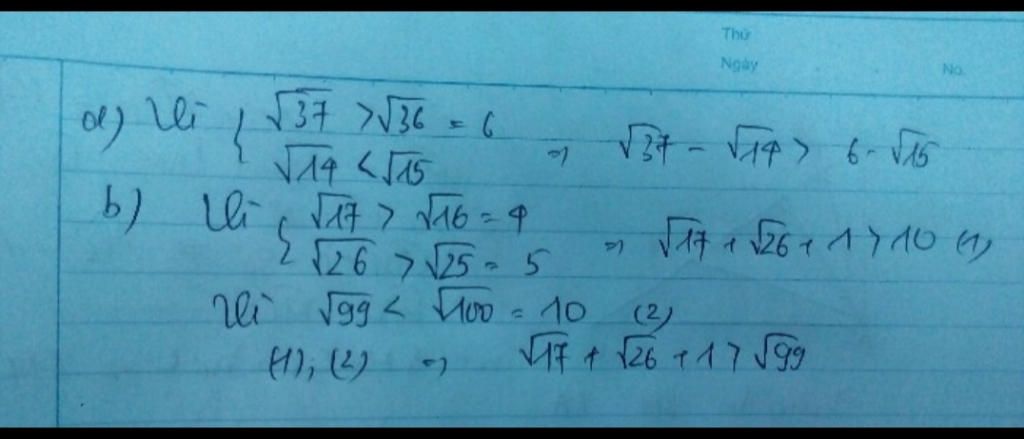 Thứ
Ngày
No.
a) Vì { √37 > √36 = 6
√14 < √15
⇒ √37 - √14 > 6 - √15
b) Vì { √17 > √16 = 4
√26 > √25 = 5
⇒ √17 + √26 + 1 > 10 (1)
Vì √99 < √100 = 10 (2)
(1), (2) ⇒ √17 + √26 + 1 > √99